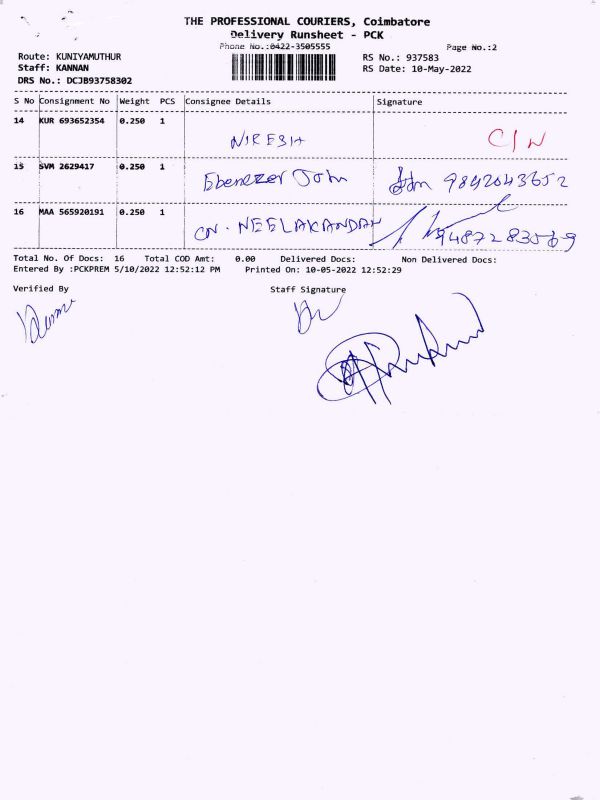 THE PROFESSIONAL COURIERS, Coimbatore
Delivery Runsheet - PCK
Phone No.:0422-3505555
Page No.:2
Route: KUNIYAMUTHUR
RS No.: 937583
Staff: KANNAN
RS Date: 10-May-2022
DRS No.: DCJB93758302
S No Consignment No Weight PCS Consignee Details Signature
14 KUR 693652354 0.250 1 NIRESH C/N
15 SVM 2629417 0.250 1 Ebenezer John 9842043652
16 MAA 565920191 0.250 1 CN. NEELAKANDAN 9487283569
Total No. Of Docs: 16 Total COD Amt: 0.00 Delivered Docs: Non Delivered Docs:
Entered By :PCKPREM 5/10/2022 12:52:12 PM Printed On: 10-05-2022 12:52:29
Verified By Staff Signature